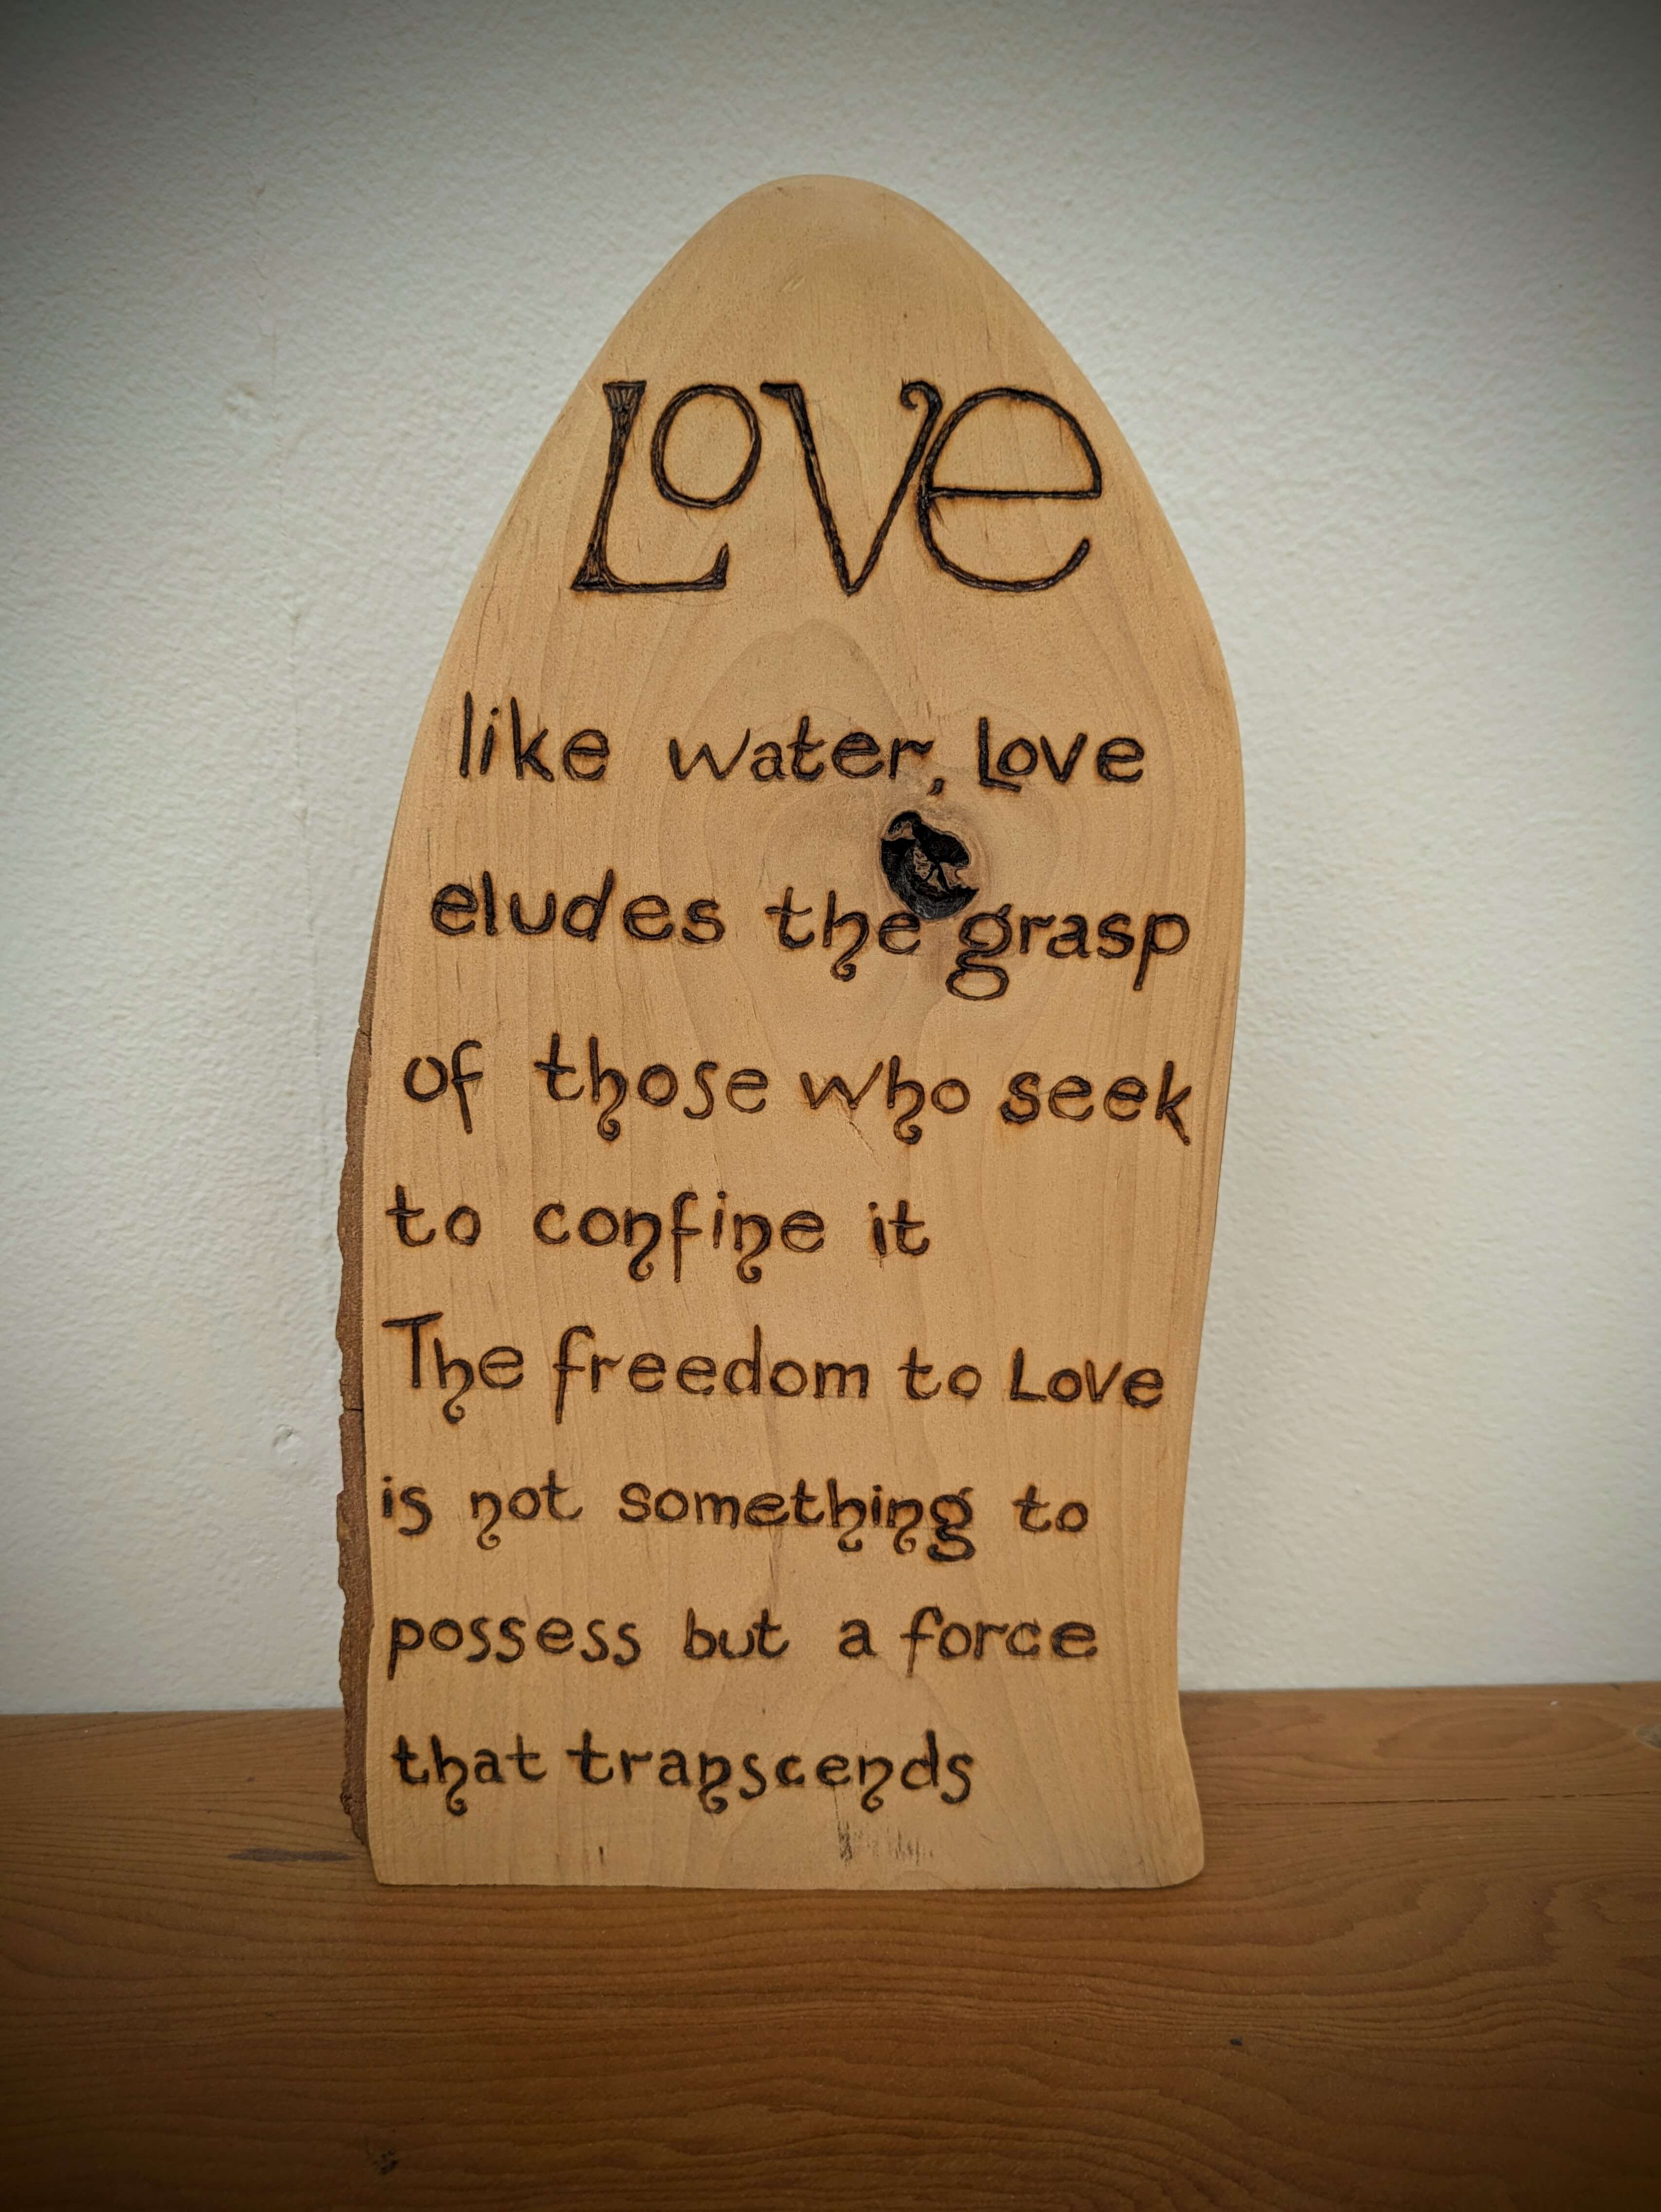 Love
like water, Love
eludes the grasp
of those who seek
to confine it
The freedom to Love
is not something to
possess but a force
that transcends